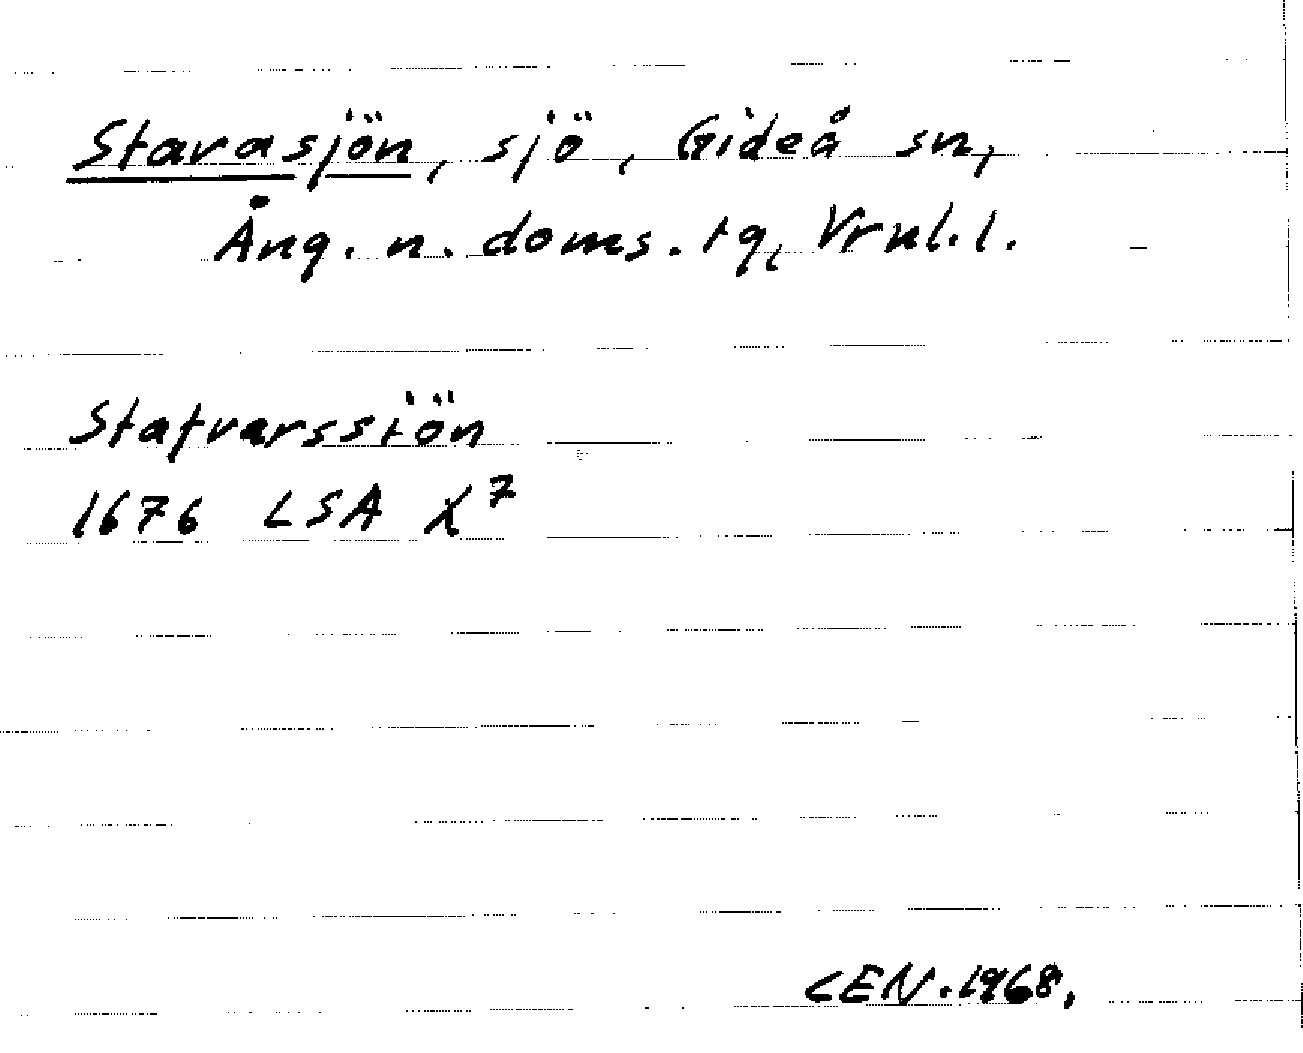 Stavasjön, sjö, Gideå sn,
Ång. n. doms. tg, Vrnl. l.
Stafvarssiön
1676 LSA X⁷
CEN. 1968.